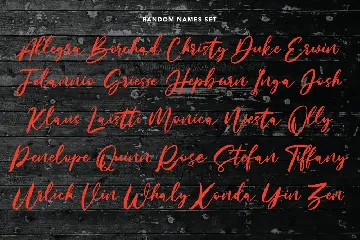 RANDOM NAMES SET
Allegra Borchad Christy Duke Erwin
Griesse Hepburn Inga Josh
Klaus Laistti Monica Niesta Olly
Penelope Quinn Rose Stefan Tiffany
Urlich Vin Whaly Xonda Yin Zen